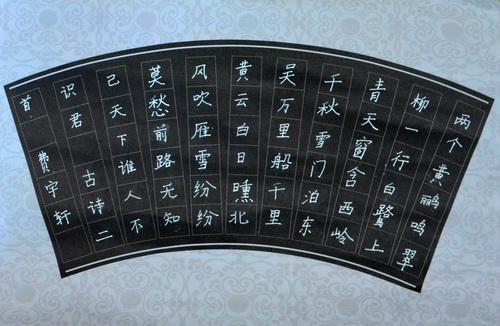 两个黄鹂鸣翠
柳一行白鹭上
青天窗含西岭
千秋雪门泊东
吴万里船千里
黄云白日曛北
风吹雁雪纷纷
莫愁前路无知
己天下谁人不
识君 古诗二
首 费宇轩